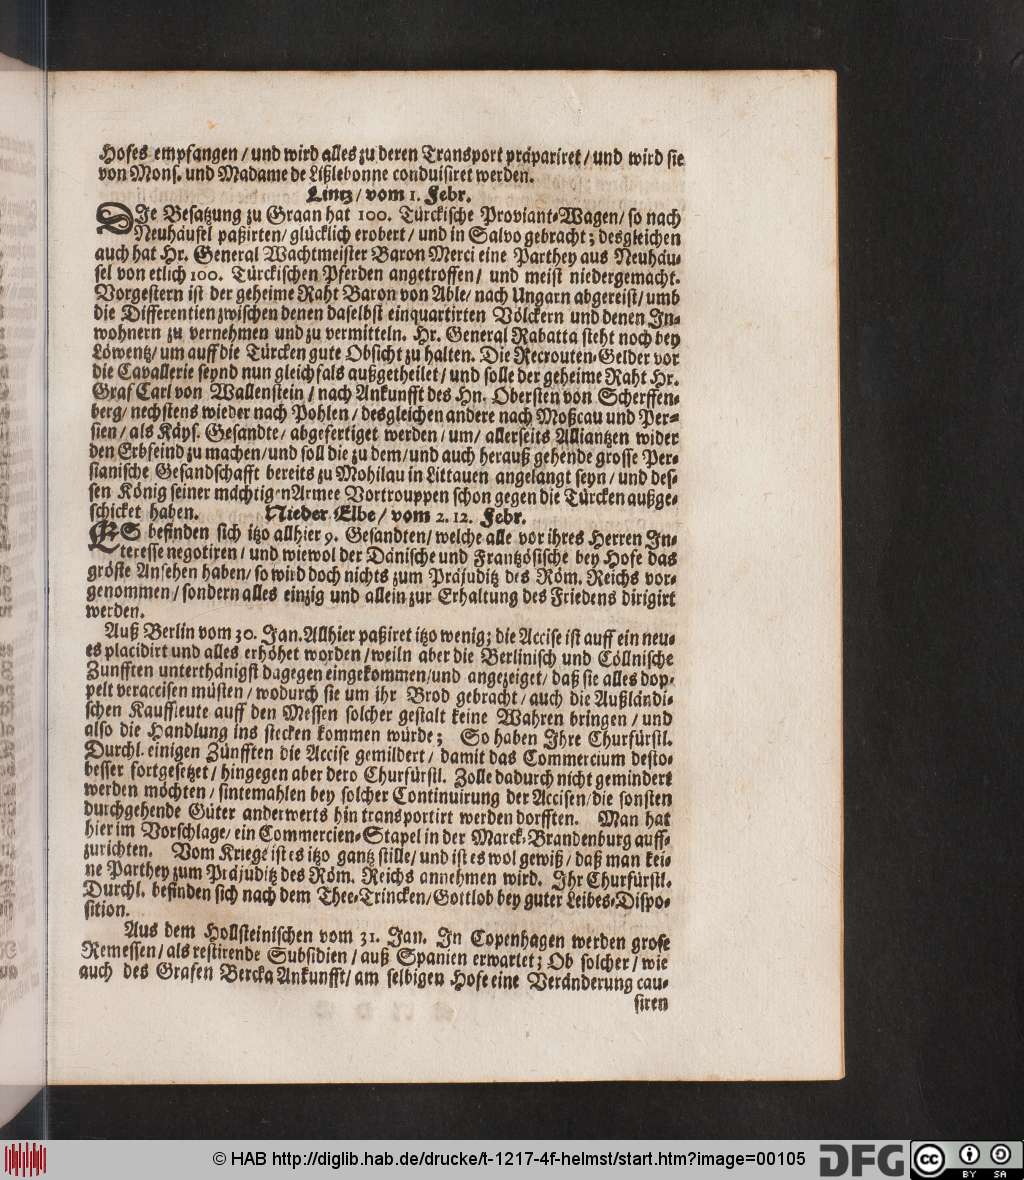 Hofes empfangen / und wird alles zu deren Transport präpariret / und wird sie
von Mons. und Madame de Lißlebonne conduisiret werden.
Lintz / vom 1. Febr.
DIe Besatzung zu Graan hat 100. Türckische Proviant-Wagen / so nach
Neuhäusel paßirten / glücklich erobert / und in Salvo gebracht; desgleichen
auch hat Hr. General Wachtmeister Baron Merci eine Parthey aus Neuhäu-
sel von etlich 100. Türckischen Pferden angetroffen / und meist niedergemacht.
Vorgestern ist der geheime Raht Baron von Able / nach Ungarn abgereist / umb
die Differentien zwischen denen daselbst einquartirten Völckern und denen In-
wohnern zu vernehmen und zu vermitteln. Hr. General Rabatta steht noch bey
Löwentz / um auff die Türcken gute Obsicht zu halten. Die Recrouten-Gelder vor
die Cavallerie seynd nun gleichfals außgetheilet / und solle der geheime Raht Hr.
Graf Carl von Wallenstein / nach Ankunfft des Hn. Obersten von Scherffen-
berg / nechstens wieder nach Pohlen / desgleichen andere nach Moßcau und Per-
sien / als Käys. Gesandte / abgefertiget werden / um / allerseits Alliantzen wider
den Erbfeind zu machen / und soll die zu dem / und auch herauß gehende grosse Per-
sianische Gesandschafft bereits zu Mohilau in Littauen angelangt seyn / und des-
sen König seiner mächtigen Armee Vortrouppen schon gegen die Türcken außge-
schicket haben. Nieder Elbe / vom 2. 12. Febr.
ES befinden sich itzo allhier 9. Gesandten / welche alle vor ihres Herren In-
teresse negotiren / und wiewol der Dänische und Frantzösische bey Hofe das
gröste Ansehen haben / so wird doch nichts zum Präjuditz des Röm. Reichs vor-
genommen / sondern alles einzig und allein zur Erhaltung des Friedens dirigirt
werden.
Auß Berlin vom 30. Jan. Allhier paßiret itzo wenig; die Accise ist auff ein neu-
es placidirt und alles erhöhet worden / weiln aber die Berlinisch und Cöllnische
Zunfften unterthänigst dagegen eingekommen / und angezeiget / daß sie alles dop-
pelt veraccisen müsten / wodurch sie um ihr Brod gebracht / auch die Außländi-
schen Kauffleute auff den Messen solcher gestalt keine Wahren bringen / und
also die Handlung ins stecken kommen würde; So haben Ihre Churfürstl.
Durchl. einigen Zünfften die Accise gemildert / damit das Commercium desto-
besser fortgesetzet / hingegen aber dero Churfürstl. Zolle dadurch nicht gemindert
werden möchten / sintemahlen bey solcher Continuirung der Accisen / die sonsten
durchgehende Güter anderwerts hin transportirt werden dorfften. Man hat
hier im Vorschlage / ein Commercien-Stapel in der Marck-Brandenburg auff-
zurichten. Vom Kriege ist es itzo gantz stille / und ist es wol gewiß / daß man kei-
ne Parthey zum Präjuditz des Röm. Reichs annehmen wird. Ihr Churfürstl.
Durchl. befinden sich nach dem Thee-Trincken / Gottlob bey guter Leibes-Dispo-
sition.
Aus dem Hollsteinischen vom 31. Jan. In Copenhagen werden grose
Remessen / als restirende Subsidien / auß Spanien erwartet; Ob solcher / wie
auch des Grafen Bercka Ankunfft / am selbigen Hofe eine Veränderung cau-
siren
© HAB http://diglib.hab.de/drucke/t-1217-4f-helmst/start.htm?image=00105
DFG
cc
BY SA